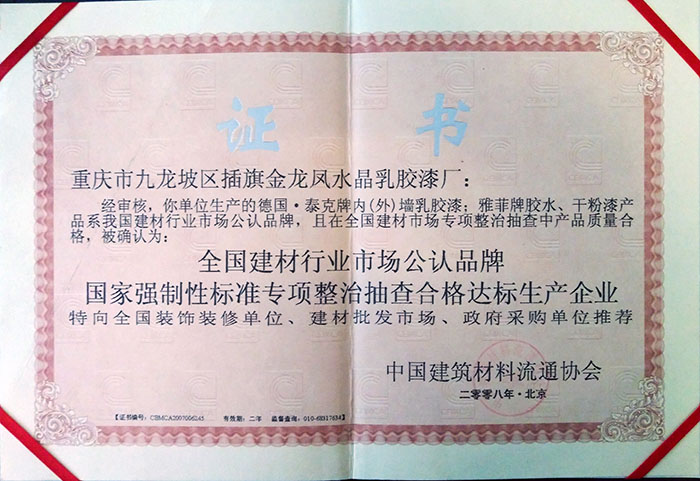 证书
重庆市九龙坡区插旗金龙凤水晶乳胶漆厂：
经审核，你单位生产的德国·泰克牌内(外)墙乳胶漆；雅菲牌胶水、干粉漆产
品系我国建材行业市场公认品牌，且在全国建材市场专项整治抽查中产品质量合
格，被确认为：
全国建材行业市场公认品牌
国家强制性标准专项整治抽查合格达标生产企业
特向全国装饰装修单位、建材批发市场、政府采购单位推荐
中国建筑材料流通协会
二零零八年·北京
【证书编号：CBMCA2007006245 有效期：二年 监督查询：010-68317634】